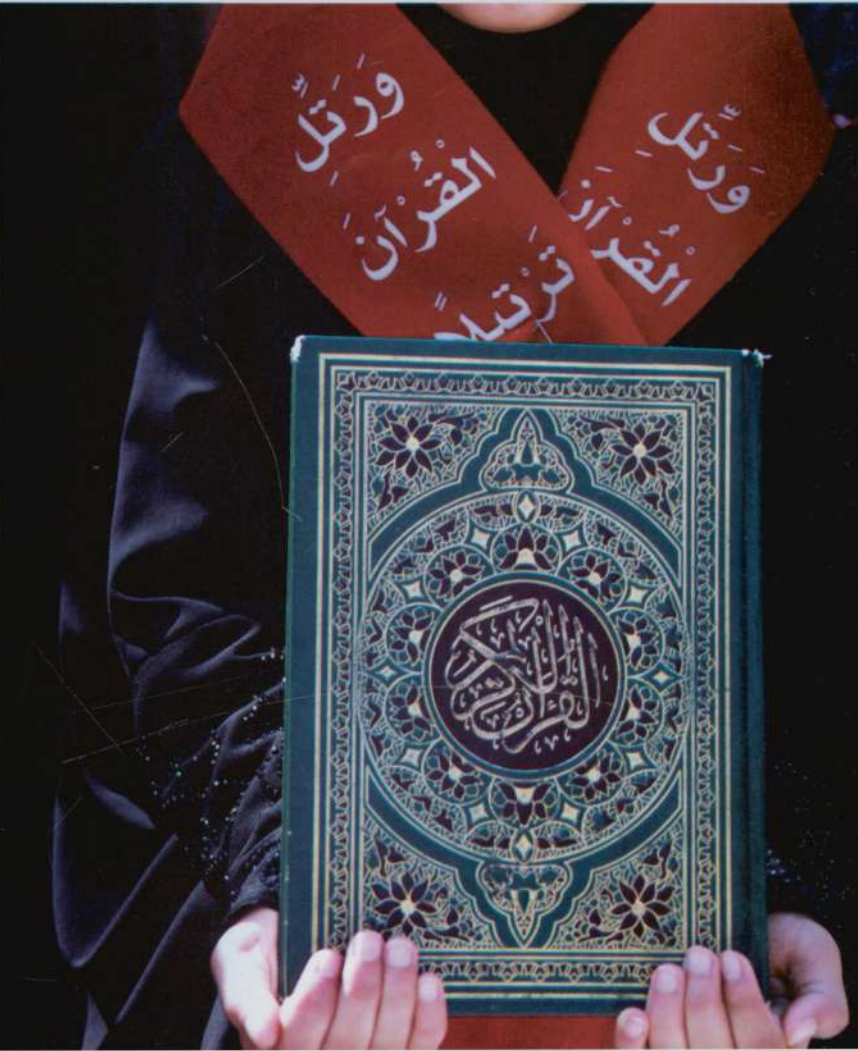 وَرَتِّلِ
الْقُرْآنَ
وَرَتِّلِ
الْقُرْآنَ
تَرْتِيلًا
القرآن الكريم